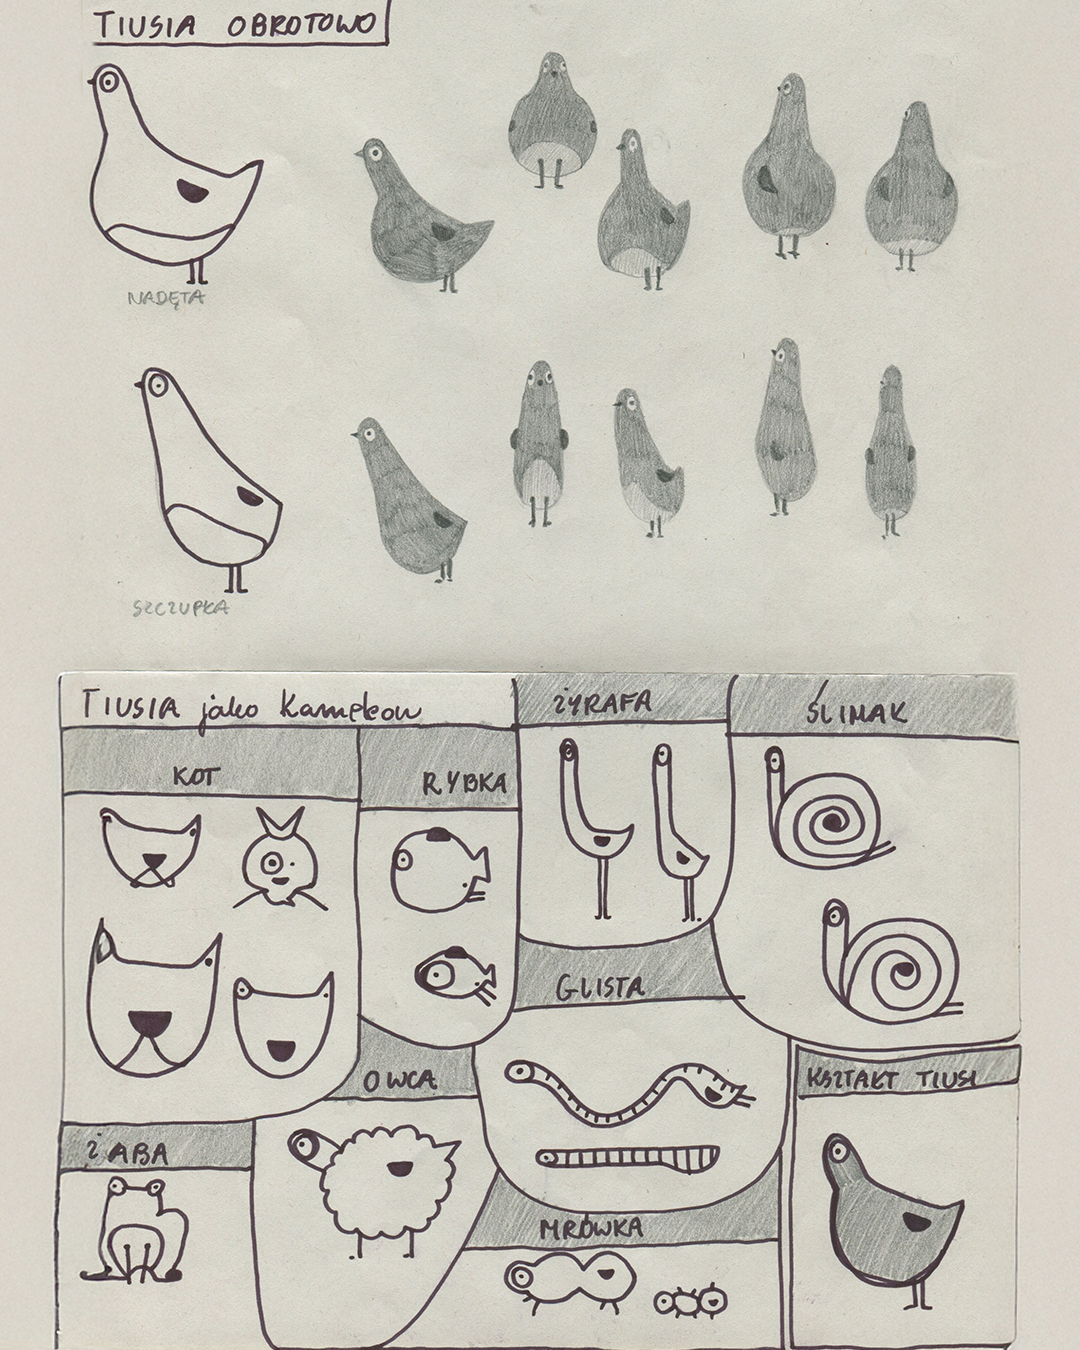 TIUSIA OBROTOWO
NADĘTA
SZCZUPŁA
TIUSIA jako Kameleon
KOT
RYBKA
ŻYRAFA
ŚLIMAK
GLISTA
OWCA
KSZTAŁT TIUSI
ŻABA
MRÓWKA